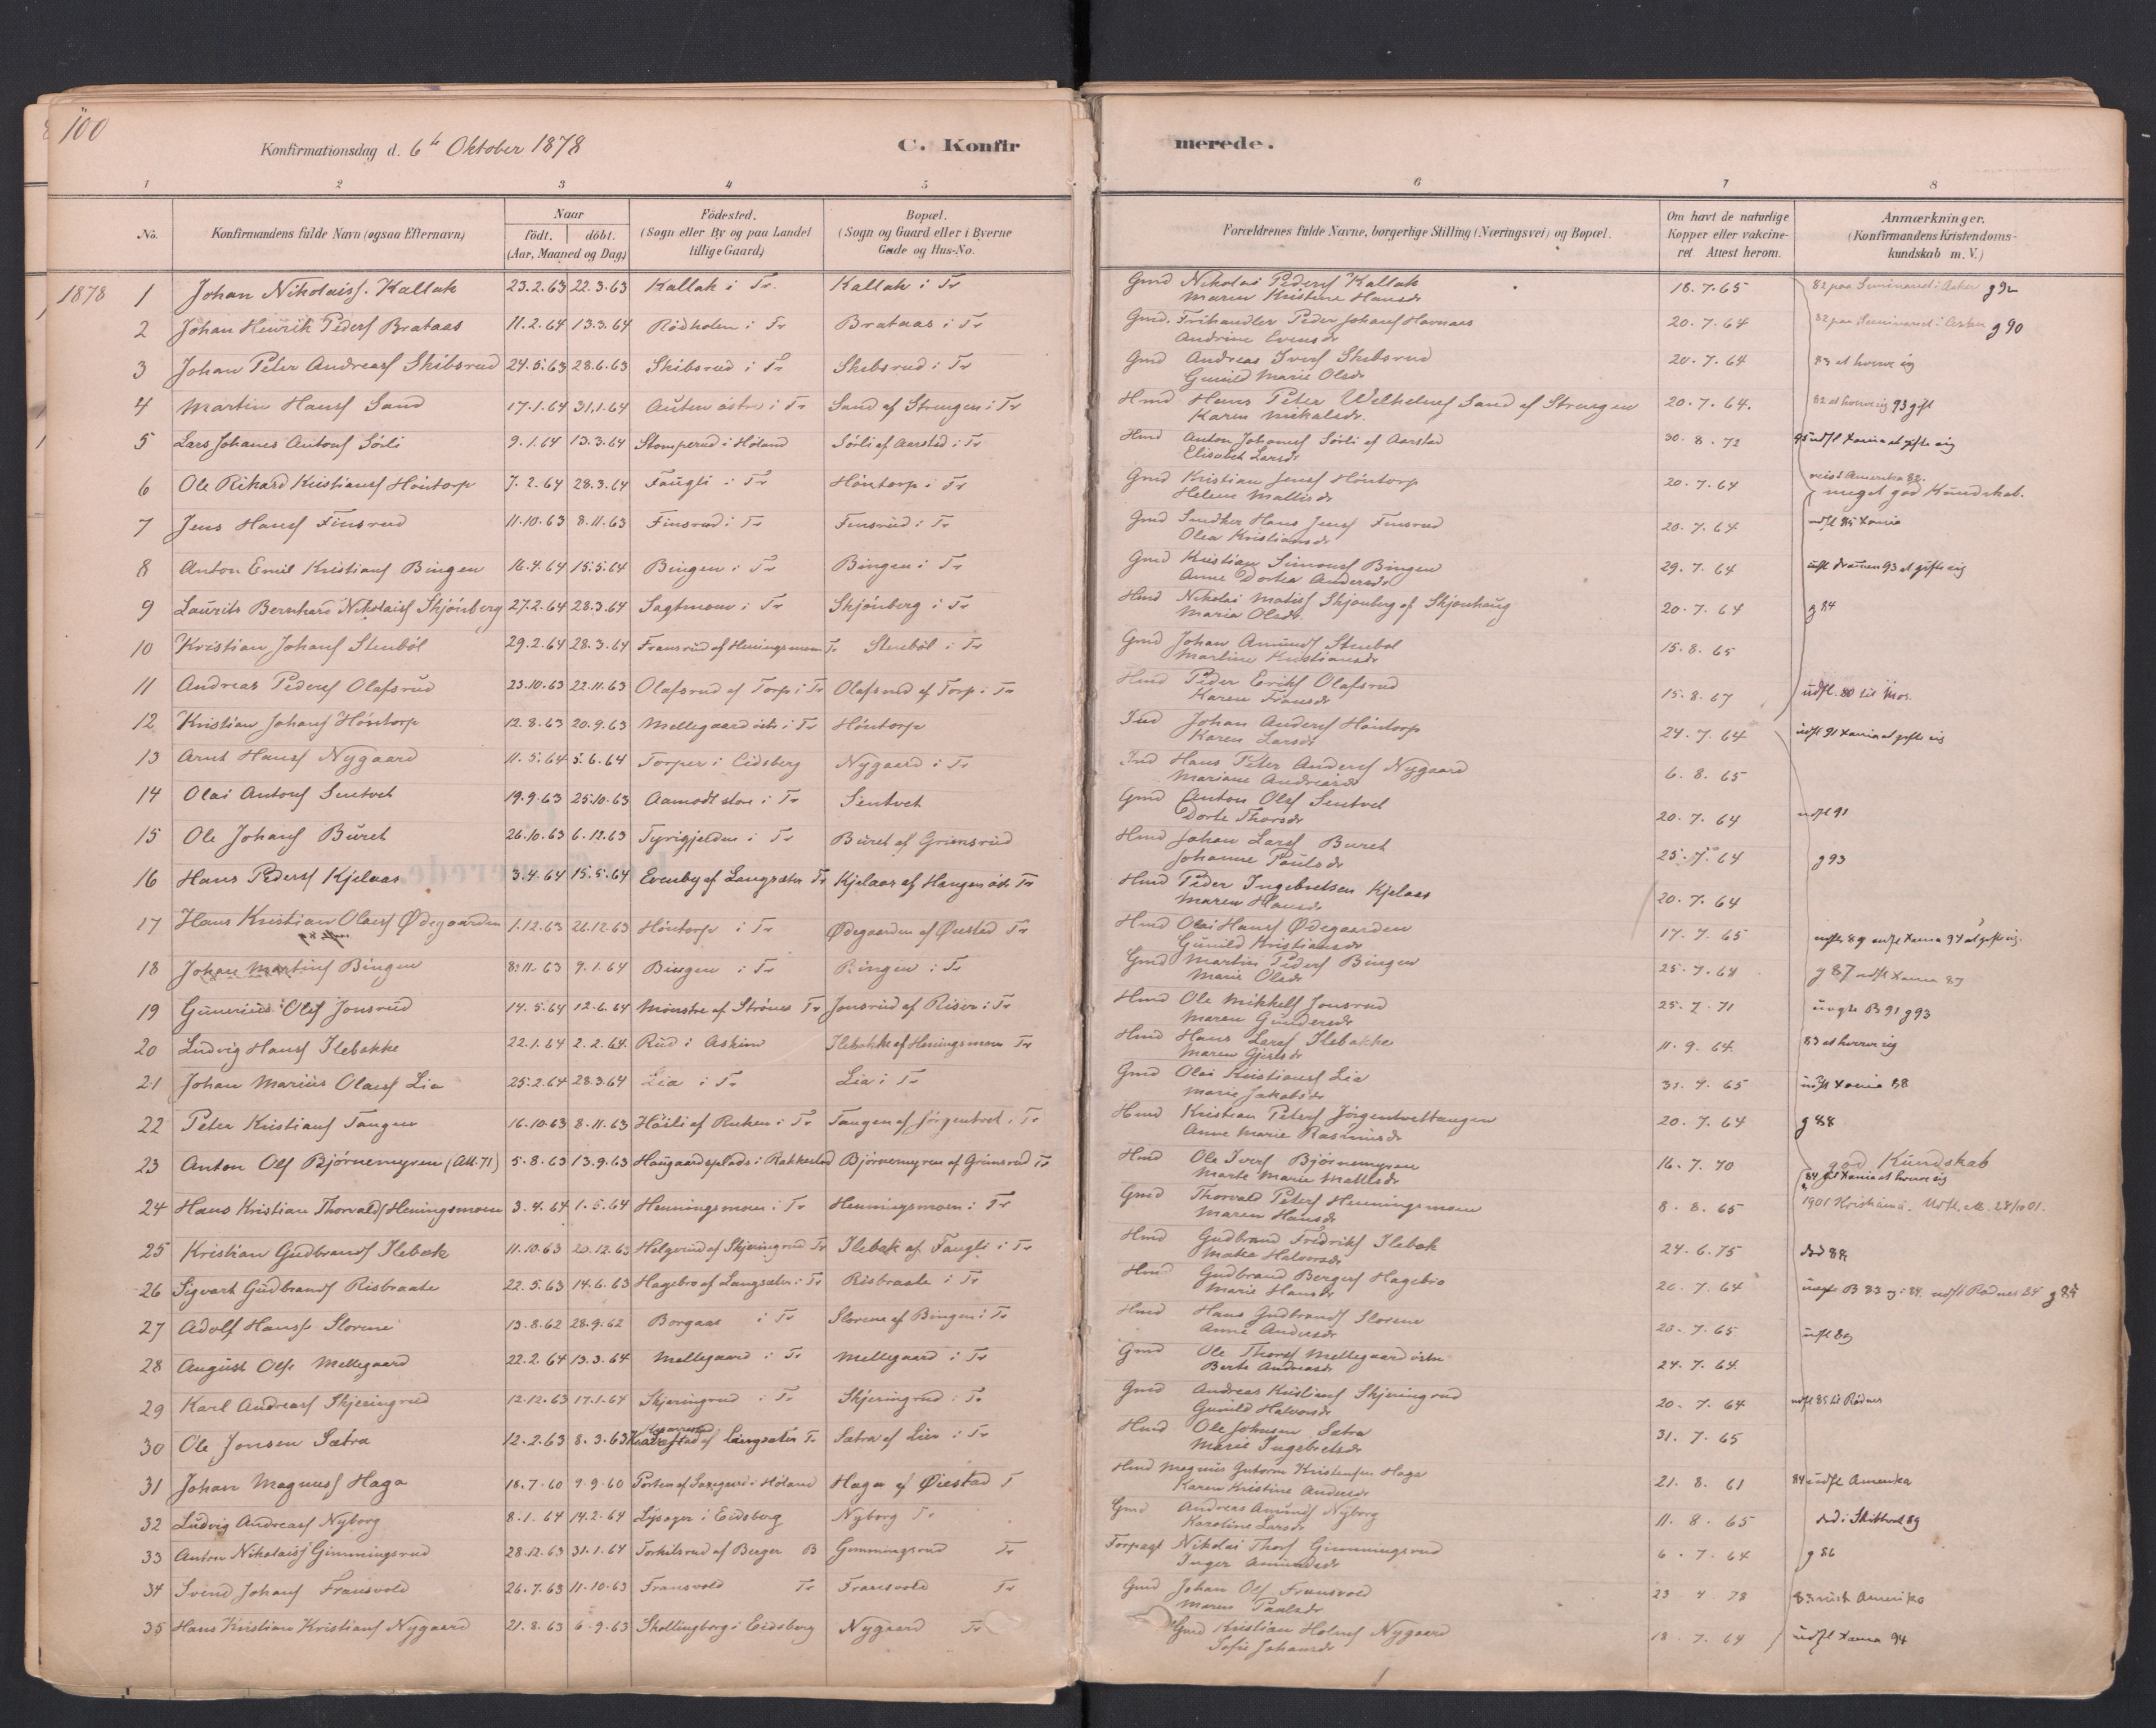 100
Konfirmationsdag d. 6te Oktober 1878
C. Konfir merede.
1 2 3 4 5 6 7 8
No.
Konfirmandens fulde Navn (ogsaa Efternavn)
Naar
födt. döbt.
(Aar, Maaned og Dag)
Födested.
(Sogn eller By og paa Landet
tillige Gaard)
Bopæl.
(Sogn og Gaard eller i Byerne
Gade og Hus-No.
Forældrenes fulde Navne, borgerlige Stilling (Næringsvei) og Bopæl.
Om havt de naturlige
Kopper eller vakcine-
ret. Attest herom.
Anmærkninger.
(Konfirmandens Kristendoms-
kundskab m. V.)
1878 1 Johan Nikolaisf. Kallak 23.2.63 22.3.63 Kallak i Tr. Kallak i Tr Gmd Nikolai Pedersf Kallak 18.7.65 82 paa Seminaret i Asker g92
Maren Kristine Hansdr
2 Johan Henrik Pedersf Brataas 11.2.64 13.3.64 Rödholen i Tr Brataas i Tr Gmd. Frihandler Peder Johansf Havnaas 20.7.64 82 paa Seminaret i Asker g90
Andrine Evensdr
3 Johan Peter Andreasf Skibsrud 24.5.63 28.6.63 Skibsrud i Tr Skibsrud i Tr Gmd Andreas Iversf Skibsrud 20.7.64 83 at hverve sig
Gunild Marie Olsdr
4 Martin Hansf Sand 17.1.64 31.1.64 Auten östre i Tr Sand af Strengen i Tr Hmd Hans Peter Wilhelmsf Sand af Strengen 20.7.64. 82 at hverve sig 93 gift
Karen Mikalsdr.
5 Lars Johanes Antonsf Sörli 9.1.64 13.3.64 Stomperud i Höland Sörli af Aarstad i Tr Hmd Anton Johansf Sörli af Aarstad 30.8.72 95 udfl Xania at gifte sig
Elisabet Larsdr
6 Ole Rikard Kristiansf Höntorp 7.2.64 28.3.64 Faugli i Tr Höntorp i Tr Gmd Kristian Jensf Höntorp 20.7.64 reist Amerika 82.
Helene Mattisdr meget god Kundskab.
7 Jens Hansf Finsrud 11.10.63 8.11.63 Finsrud i Tr Finsrud i Tr Gmd Smedker Hans Jensf Finsrud 20.7.64 udfl 85 Xania
Olea Kristiansdr
8 Anton Emil Kristiansf Bingen 16.4.64 15.5.64 Bingen i Tr Bingen i Tr Gmd Kristian Simonsf Bingen 29.7.64 udfl Dramen 93 at gifte sig
Anne Dortea Andersdr
9 Laurits Bernhard Nikolaisf Skjönberg 27.2.64 28.3.64 Sagtmoen i Tr Skjönberg i Tr Hmd Nikolai Matisf Skjonberg af Skjonhaug 20.7.64 g 84
Maria Olsdr.
10 Kristian Johansf Stenböl 29.2.64 28.3.64 Fransrud af Heningsmoen Tr Stenböl i Tr Gmd Johan Amundsf Stenbol 15.8.65
Martine Kristiansdr
11 Andreas Pedersf Olafsrud 23.10.63 22.11.63 Olafsrud af Torp i Tr Olafsrud af Torp i Tr Hmd Peder Eriksf Olafsrud 15.8.67 udfl. 80 til Mos.
Karen Fransdr
12 Kristian Johansf Höntorp 12.8.63 20.9.63 Mellegaard östr i Tr Höntorp Ind Johan Andersf Höntorp 24.7.64 udfl 91 Xania at gifte sig
Karen Larsdr
13 Arnt Hansf Nygaard 11.5.64 5.6.64 Torper i Eidsberg Nygaard i Tr Ind Hans Peter Andersf Nygaard 6.8.65
Mariane Andreasdr
14 Olai Antonsf Sentvet 19.9.63 25.10.63 Aamodt store i Tr Sentvet Gmd Anton Olsf Sentvet 20.7.64 udfl 91
Dorte Thorsdr
15 Ole Johansf Buret 26.10.63 6.12.63 Tyrigjelden i Tr Buret af Grimsrud Hmd Johan Larsf Buret 25.7.64 g93
Johanne Paulsdr
16 Hans Pedersf Kjelaas 3.4.64 15.5.64 Evenby af Langsæter Tr Kjelaas af Haugen östr Tr Hmd Peder Ingebretsen Kjelaas 20.7.64
Maren Hansdr
17 Hans Kristian Olaisf Ødegaarden 1.12.63 26.12.63 Höntorp i Tr Ødegaarden af Øiestad Tr Hmd Olai Hansf Ødegaarden 17.7.65 89 udfl Xania 94 at gifte sig.
Gunild Kristiansdr
18 Johan Martinsf Bingen 8.11.63 9.1.64 Bingen i Tr Bingen i Tr Gmd Martin Pedersf Bingen 25.7.64 g87 udfl Xania 87
Marie Olsdr
19 Gunerius Olsf Jonsrud 14.5.64 12.6.64 Mönstre af Strönes Tr Jonsrud af Riser i Tr Hmd Ole Mikkelsf Jonsrud 25.7.71 ungk B 91 g93
Maren Gundersdr
20 Ludvig Hansf Ilebakke 22.1.64 2.2.64. Rud i Askim Ilebakke af Heningsmoen Tr Hmd Hans Larsf Ilebakke 11.9.64. 83 at hverve sig
Maren Gjertsdr
21 Johan Marius Olaisf Lia 25.2.64 28.3.64 Lia i Tr Lia i Tr Gmd Olai Kristiansf Lia 31.7.65 udfl Xania 88
Marie Jakobsdr
22 Peter Kristiansf Tangen 16.10.63 8.11.63 Höiti af Ruken i Tr Tangen af Jörgentvet i Tr Hmd Kristian Petersf Jörgentvettangen 20.7.64 g 88
Anne Marie Rasmusdr
23 Anton Olsf Björnemyren (Att. 71) 5.8.63 13.9.63 Haugaardsplads i Rakkestad Björnemyren af Grimsrud Tr Hmd Ole Iversf Björnemyren 16.7.70 god Kundskab
Marte Marie Matilsdr 84 Xania at hverve sig
24 Hans Kristian Thorvaldsf Heningsmoen 3.4.64 1.5.64 Henningsmoen i Tr Henningsmoen i Tr Gmd Thorvald Petersf Henningsmoen 8.8.65 1901 Kristiania. Udfl. att. 28/10 01.
Maren Hansdr
25 Kristian Gudbrandsf Ilebæk 11.10.63 20.12.63 Helgerud af Skjeringrud Tr Ilebæk af Faugli i Tr Hmd Gudbrand Fredriksf Ilebæk 24.6.75 död 84
Matea Halvorsdr
26 Sigvart Gudbrandsf Risbraate 22.5.63 14.6.63 Hagebro af Langsæter i Tr Risbraate i Tr Hmd Gudbrand Bergersf Hagebro 26.7.64 B 83 og i 84. udfl Rödnes 84 g 85
Marie Hansdr
27 Adolf Hansf Slorene 13.8.62 28.9.62 Borgaas i Tr Slorene af Bingen i Tr Hmd Hans Gudbrandsf Slorene 20.7.65 udfl 89
Anne Andersdr
28 August Olsf. Mellegaard 22.2.64 13.3.64 Mellegaard i Tr Mellegaard i Tr Gmd Ole Thorsf Mellegaard östre 24.7.64.
Berte Andreasdr
29 Karl Andreasf Skjeringrud 12.12.63 17.1.64 Skjeringrud i Tr Skjeringrud i Tr Gmd Andreas Kristiansf Skjeringrud 20.7.64 udfl 85 til Rödnes
Gunild Halvorsdr
30 Ole Jonsen Sætra 12.2.63 8.3.63 af Langsæter Tr Sætra af Lien i Tr Hmd Ole Johnsen Sætra 31.7.65
Marie Ingebretsdr
31 Johan Magnusf Haga 18.7.60 9.9.60 Porten af Saxegaard i Höland Haga af Øiestad T Hmd Magnus Guttorm Kristensen Haga 21.8.61 84 udfl Amerika
Karen Kristine Andersdr
32 Ludvig Andreasf Nyborg 8.1.64 14.2.64 Lysager i Eidsberg Nyborg Tr Gmd Andreas Amundsf Nyborg 11.8.65 död i Skiptvet 89
Karoline Larsdr
33 Anton Nikolaisf Gimmingsrud 28.12.63 31.1.64 Torkilsrud af Berger B Gimmingsrud Tr Forpagt Nikolai Thorsf Gimmingsrud 6.7.64 g 86
Inger Amundsdr
34 Svend Johansf Fransvold 26.7.63 11.10.63 Fransvold Tr Fransvold Tr Gmd Johan Olsf Fransvold 23 4 78 83 reist Amerika
Maren Paulsdr
35 Hans Kristian Kristiansf Nygaard 21.8.63 6.9.63 Skollingborg i Eidsberg Nygaard Tr Gmd Kristian Holmsf Nygaard 18.7.64 udfl Xania 94
Sofie Johansdr